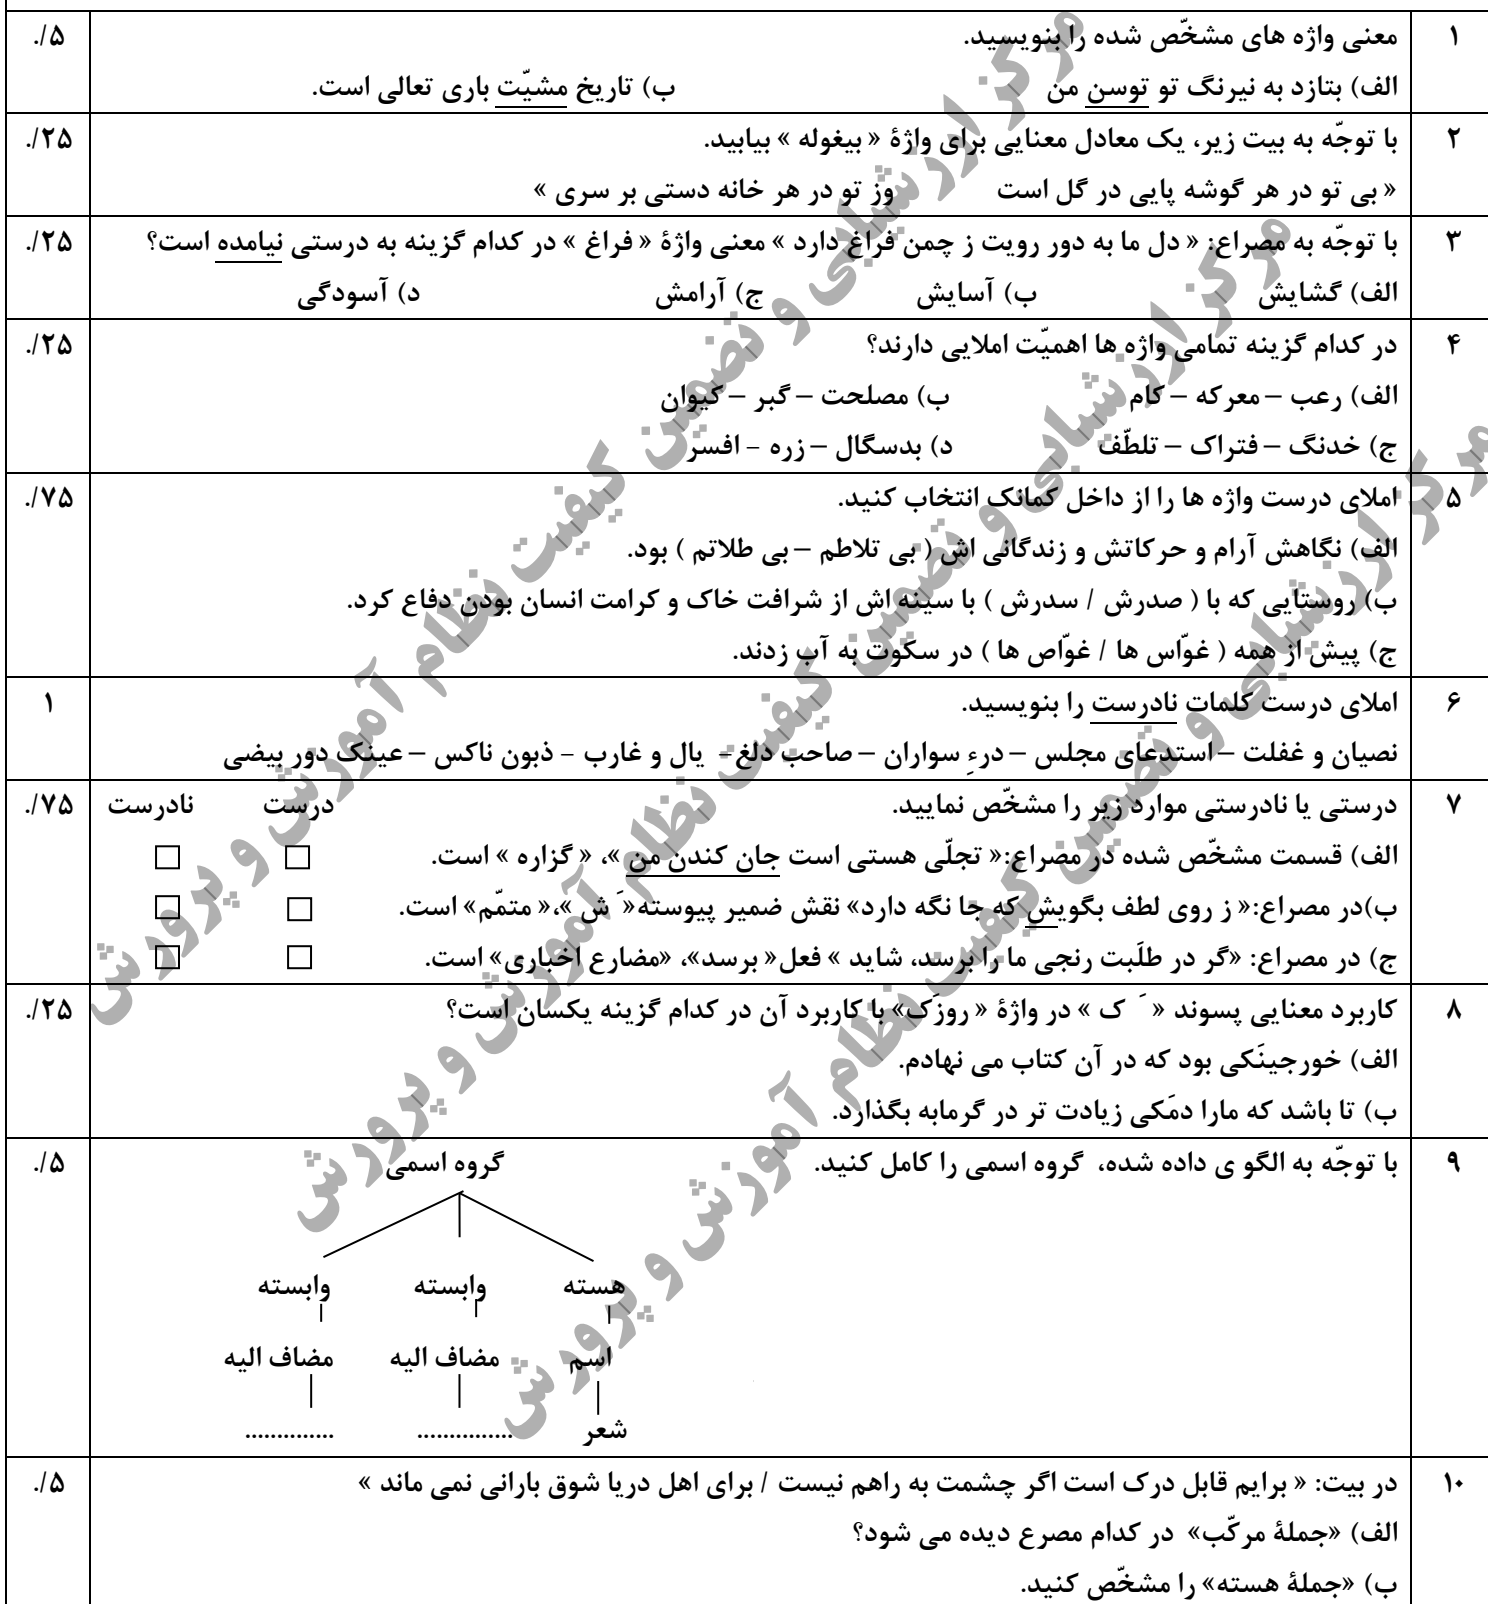 ۱ معنی واژه های مشخّص شده را بنویسید. ۵/.
الف) بتازد به نیرنگ تو توسن من ب) تاریخ مشیّت باری تعالی است.
۲ با توجّه به بیت زیر، یک معادل معنایی برای واژۀ « بیغوله » بیابید. ۲۵/.
« بی تو در هر گوشه پایی در گل است وز تو در هر خانه دستی بر سری »
۳ با توجّه به مصراع: « دل ما به دور رویت ز چمن فراغ دارد » معنی واژۀ « فراغ » در کدام گزینه به درستی نیامده است؟ ۲۵/.
الف) گشایش ب) آسایش ج) آرامش د) آسودگی
۴ در کدام گزینه تمامی واژه ها اهمیّت املایی دارند؟ ۲۵/.
الف) رعب – معرکه – کام ب) مصلحت – گبر – کیوان
ج) خدنگ – فتراک – تلطّف د) بدسگال – زره - افسر
۵ املای درست واژه ها را از داخل کمانک انتخاب کنید. ۷۵/.
الف) نگاهش آرام و حرکاتش و زندگانی اش ( بی تلاطم – بی طلاتم ) بود.
ب) روستایی که با ( صدرش / سدرش ) با سینه اش از شرافت خاک و کرامت انسان بودن دفاع کرد.
ج) پیش از همه ( غوّاس ها / غوّاص ها ) در سکوت به آب زدند.
۶ املای درست کلمات نادرست را بنویسید. ۱
نصیان و غفلت – استدعای مجلس – درءِ سواران – صاحب دلغ – یال و غارب - ذبون ناکس – عینک دور بیضی
۷ درستی یا نادرستی موارد زیر را مشخّص نمایید. درست نادرست ۷۵/.
الف) قسمت مشخّص شده در مصراع:« تجلّی هستی است جان کندن من »، « گزاره » است. □ □
ب)در مصراع:« ز روی لطف بگویش که جا نگه دارد» نقش ضمیر پیوسته« َ ش »،« متمّم» است. □ □
ج) در مصراع: «گر در طلَبت رنجی ما را برسد، شاید » فعل« برسد»، «مضارع اخباری» است. □ □
۸ کاربرد معنایی پسوند « َ ک » در واژۀ « روزَک» با کاربرد آن در کدام گزینه یکسان است؟ ۲۵/.
الف) خورجینَکی بود که در آن کتاب می نهادم.
ب) تا باشد که مارا دمَکی زیادت تر در گرمابه بگذارد.
۹ با توجّه به الگو ی داده شده، گروه اسمی را کامل کنید. گروه اسمی ۵/.
هسته وابسته وابسته
اسم مضاف الیه مضاف الیه
شعر ............... ..............
۱۰ در بیت: « برایم قابل درک است اگر چشمت به راهم نیست / برای اهل دریا شوق بارانی نمی ماند » ۵/.
الف) «جملۀ مرکّب» در کدام مصرع دیده می شود؟
ب) «جملۀ هسته» را مشخّص کنید.
مرکز ارزشیابی و تضمین کیفیت نظام آموزش و پرورش
مرکز ارزشیابی و تضمین کیفیت نظام آموزش و پرورش
مرکز ارزشیابی و تضمین کیفیت نظام آموزش و پرورش